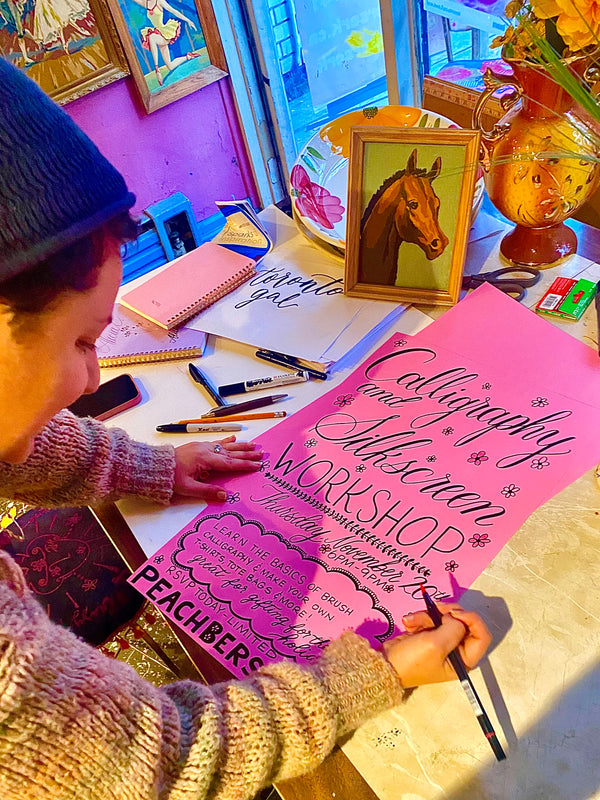 toronto
gal
Calligraphy
and
Silkscreen
WORKSHOP
Thursday, November 20th
6PM-9PM
LEARN THE BASICS OF BRUSH
CALLIGRAPHY & MAKE YOUR OWN
T-SHIRTS, TOTE BAGS & MORE!
great for gifting for the
RSVP TODAY, LIMITED
PEACHBERS